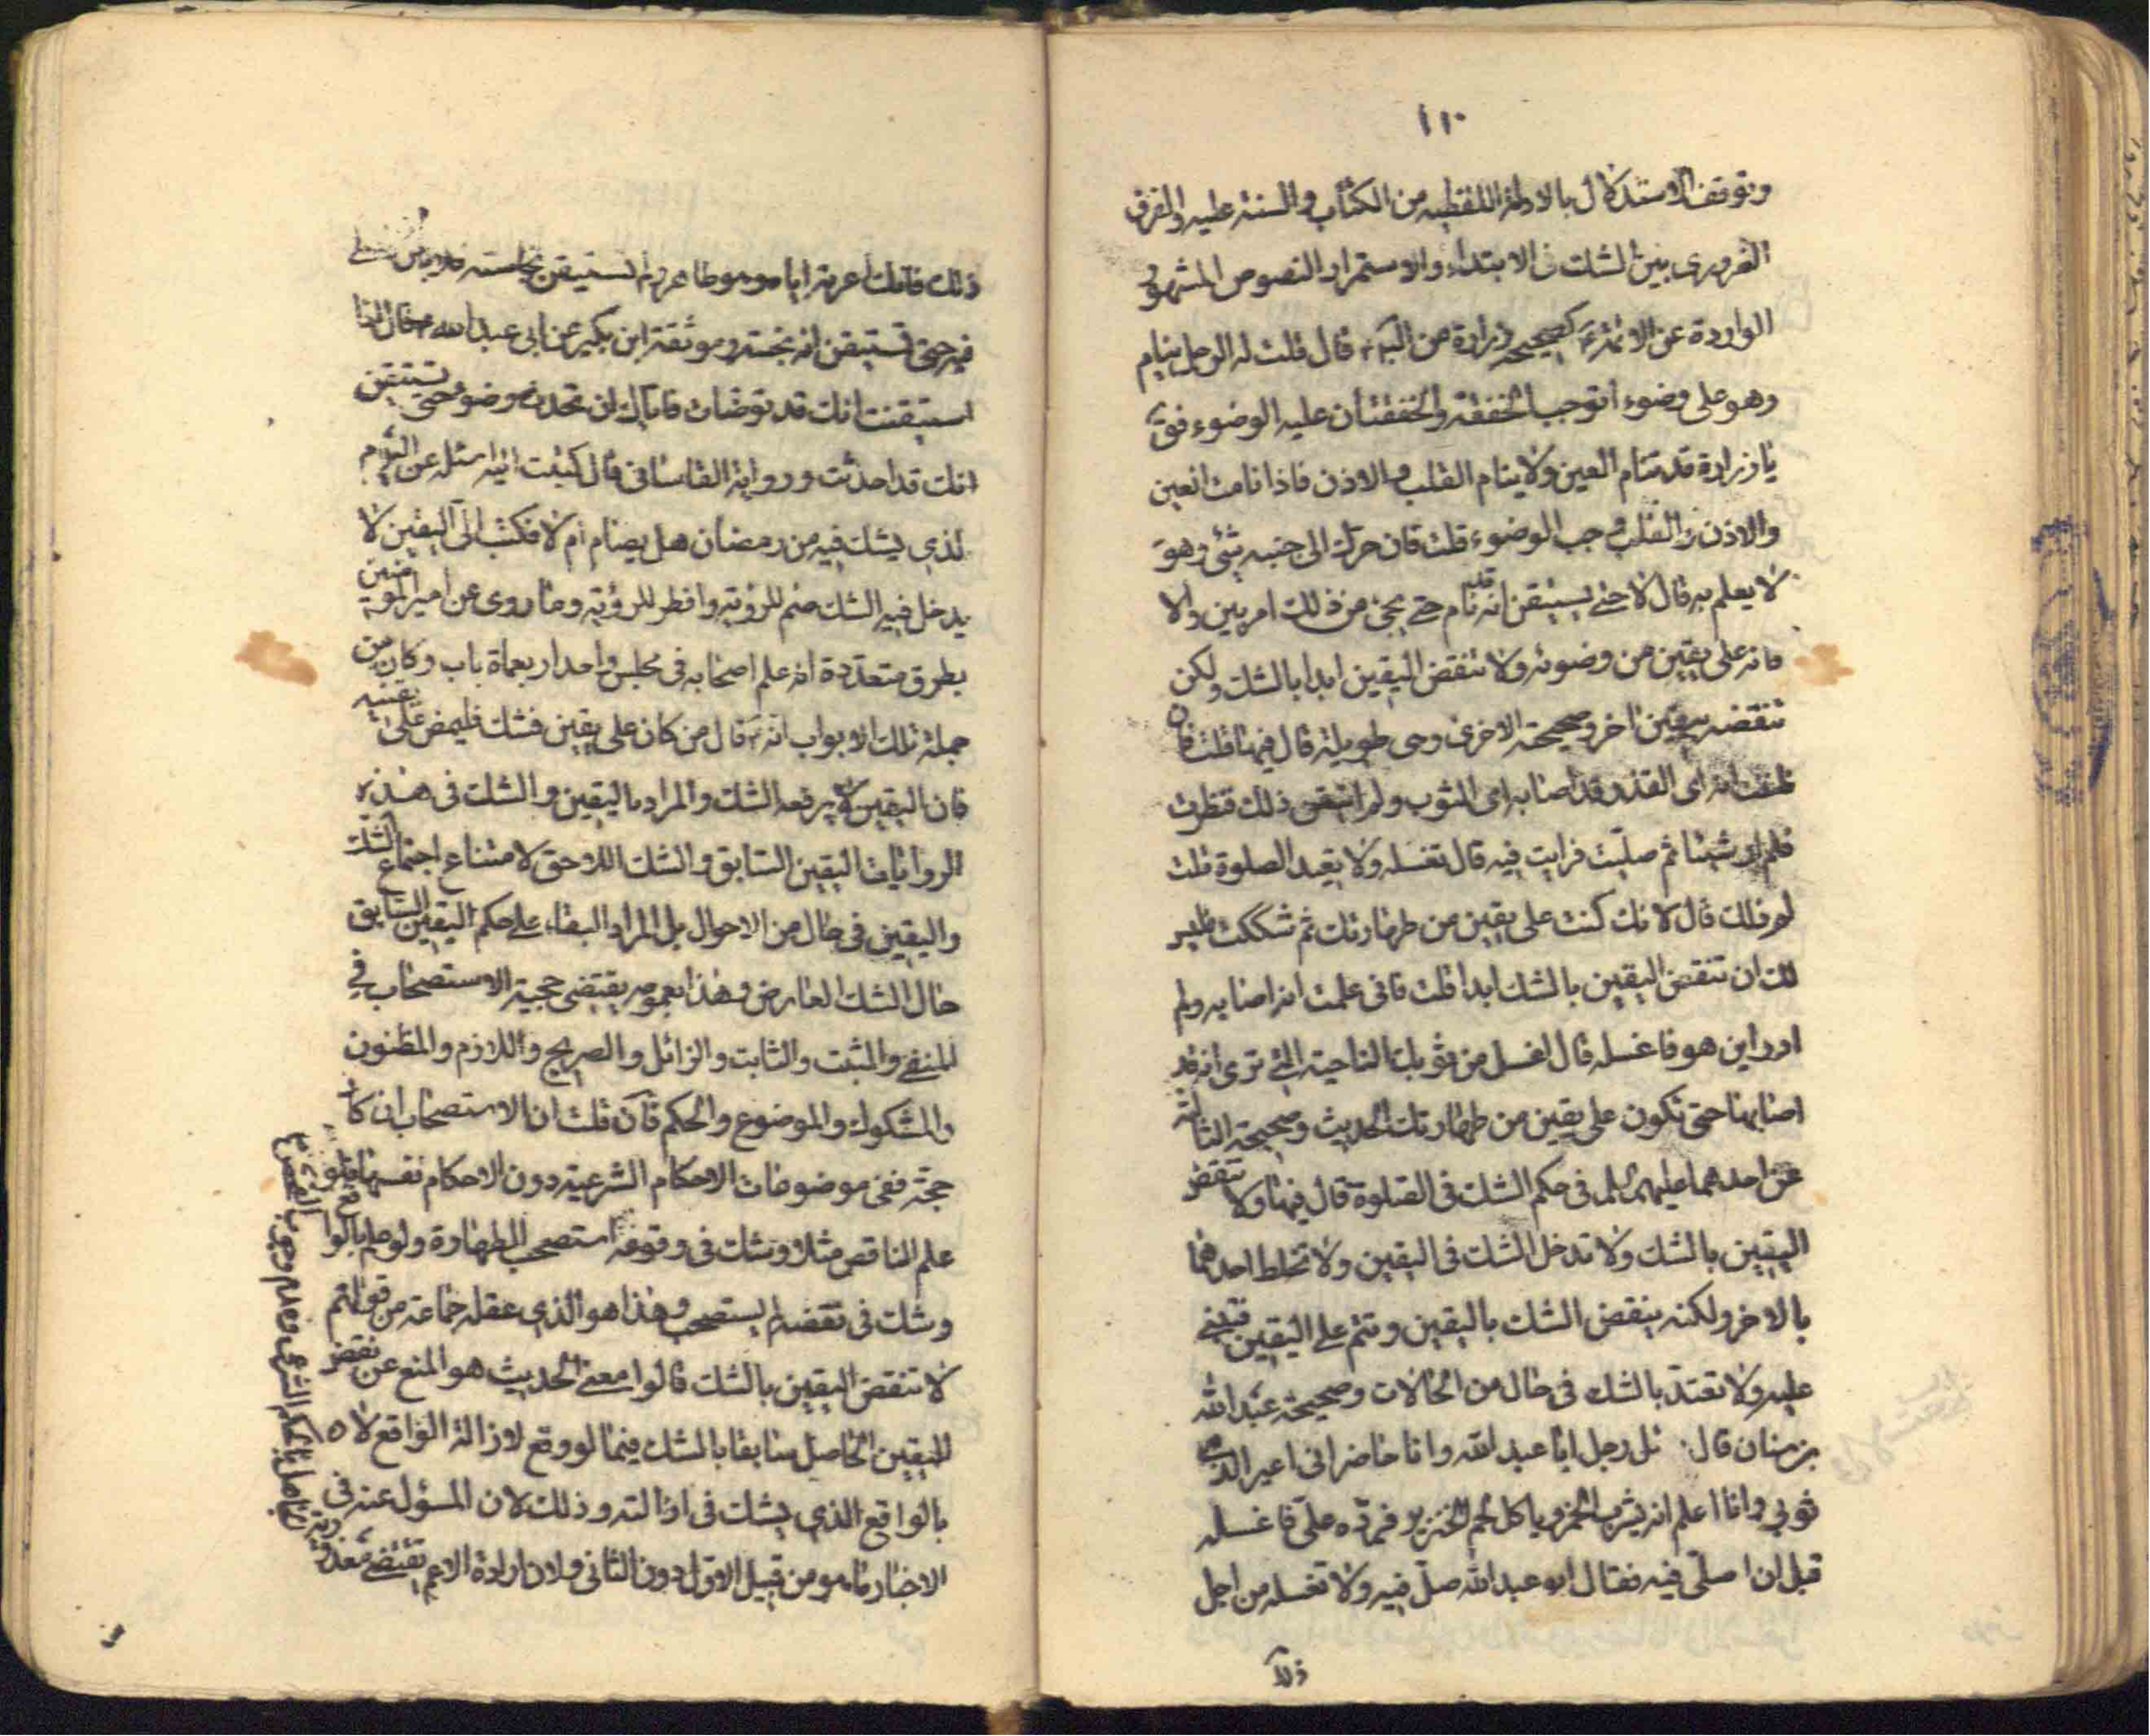 ١١٠
وتوقف الاستدلال بالادلة اللفظيه من الكتاب والسنة عليه والفرق
الضروري بين الشك فى الابتداء والاستمرار والنصوص المشهورة
الواردة عن الائمة ع كصحيحة زرارة عن الباقر ع قال قلت له الرجل ينام
وهو على وضوء اتوجب الخفقة والخفقتان عليه الوضوء فق
يا زرارة قد تنام العين ولا ينام القلب والاذن فاذا نامت العين
والاذن والقلب وجب الوضوء قلت فان حرك الى جنبه شئ وهو
لا يعلم به قال لا حتى يستيقن انه قد نام حتى يجئ من ذلك امر بين والا
فانه على يقين من وضوئه ولا تنقض اليقين ابدا بالشك ولكن
تنقضه بيقين اخر وصحيحته الاخرى وهى طويلة قال فيها قلت فان
ظننت انه اى القذر قد اصابه اى الثوب ولم اتيقن ذلك فنظرت
فلم ار شيئا ثم صليت فرايت فيه قال تغسله ولا يعيد الصلوة قلت
لم ذلك قال لانك كنت على يقين من طهارتك ثم شككت فليس
لك ان تنقض اليقين بالشك ابدا قلت فانى علمت انه اصابه ولم
ادر اين هو فاغسله قال اغسل من ثوبك الناحية التى ترى انه قد
اصابها حتى تكون على يقين من طهارتك الحديث وصحيحته الثالثة
عن احدهما عليهما السلم فى حكم الشك فى الصلوة قال فيها ولا تنقض
اليقين بالشك ولا تدخل الشك فى اليقين ولا تخلط احدهما
بالاخر ولكنه ينقض الشك باليقين وتتم على اليقين فتبنى
عليه ولا تعتد بالشك فى حال من الحالات وصحيحة عبد الله
بن سنان قال سئل رجل ابا عبد الله وانا حاضر انى اعير الذمى
ثوبي وانا اعلم انه يشرب الخمر وياكل لحم الخنزير فيرده على فاغسله
قبل ان اصلى فيه فقال ابو عبد الله صل فيه ولا تغسله من اجل
ذلك
ذلك فانك اعرته اياه وهو طاهر ولم تستيقن نجاسته فلا باس ان تصلى
فيه حتى تستيقن انه نجسه وموثقة ابن بكير عن ابى عبد الله ع قال اذا
استيقنت انك قد توضات فاياك ان تحدث وضوء حتى تستيقن
انك قد احدثت ورواية القاسانى قال كتبت اليه اسئله عن اليوم
الذي يشك فيه من رمضان هل يصام ام لا فكتب الى اليقين لا
يدخل فيه الشك صم للرؤية وافطر للرؤية وما روى عن امير المؤمنين
بطرق متعددة انه علم اصحابه فى مجلس واحد اربعماة باب وكان من
جملة تلك الابواب انه ع قال من كان على يقين فشك فليمض على يقينه
فان اليقين لا يرفعه الشك والمراد باليقين والشك فى هذه
الروايات اليقين السابق والشك اللاحق لامتناع اجتماع الشك
واليقين فى حال من الاحوال بل المراد البقاء على حكم اليقين السابق
حال الشك العارض وهذا بعمومه يقتضى حجية الاستصحاب في
المنفى والمثبت والثابت والزائل والصريح واللازم والمظنون
والمشكوك والموضوع والحكم فآن قلت ان الاستصحاب ان كا
حجة ففى موضوعات الاحكام الشرعية دون الاحكام نفسها فلو
علم الناقض مثلا وشك فى وقوعه استصحب الطهارة ولو علم بالوا
وشك فى نقضه لم يستصحب وهذا هو الذي عقله جماعة من قولهم
لا تنقض اليقين بالشك قالوا معنى الحديث هو المنع عن نقض
اليقين الحاصل سابقا بالشك فيما لو وقع لازالة الواقع لا
بالواقع الذي يشك فى ازالته وذلك لان المسؤل عنه فى
الاخبار ما هو من قبيل الاول دون الثانى ولان ارادة الاعم يقتضى